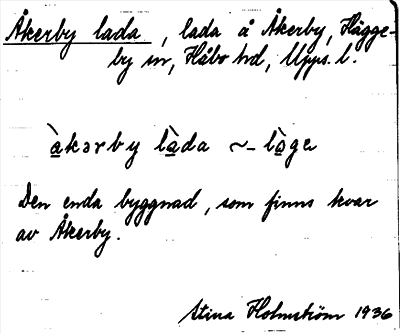 Åkerby lada, lada å Åkerby, Hägge-
by sn, Håbo hd, Upps. l.
àkərby làda ~ - lògɐ
Den enda byggnad, som finns kvar
av Åkerby.
Stina Holmström 1936